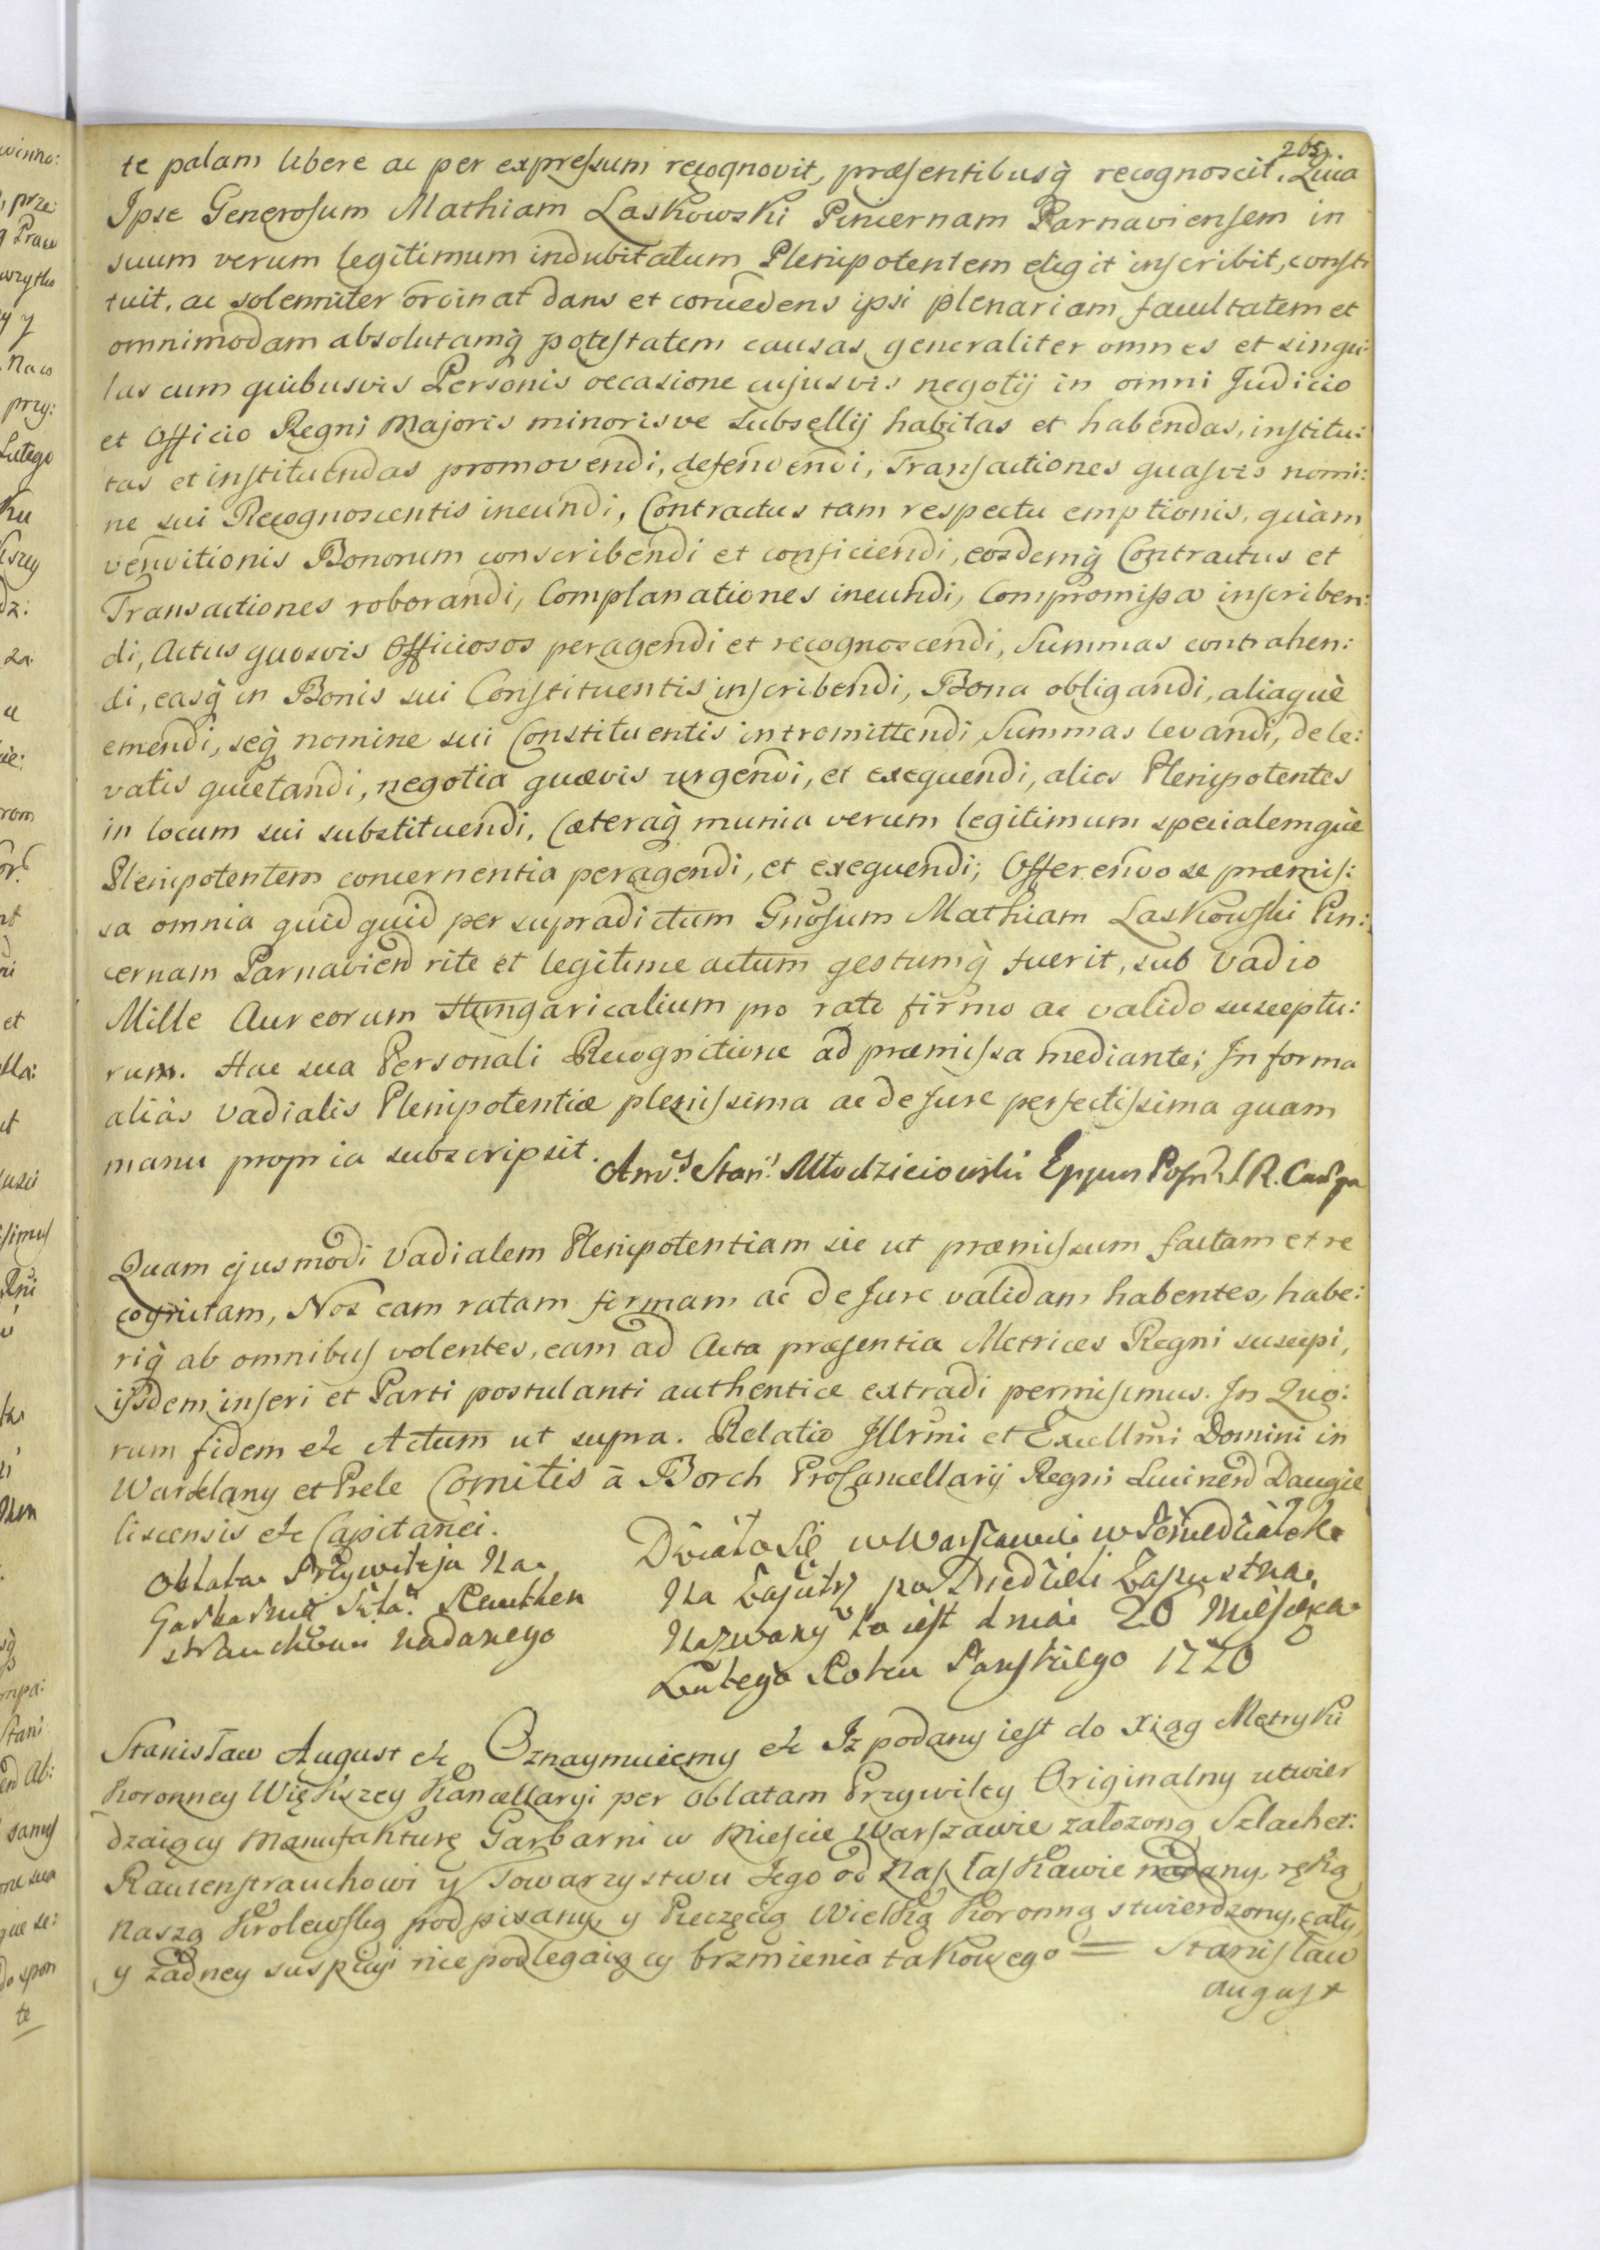 265.
te palam libere ac per expressum recognovit, præsentibusq̀ recognoscit. Quia
Ipse Generosum Mathiam Laskowski Pincernam Parnaviensem in
suum verum legitimum indubitatum Plenipotentem eligit inscribit, consti
tuit, ac solemniter ordinat dans et concedens ipsi plenariam facultatem et
omnimodam absolutamq̀ potestatem causas generaliter omnes et singu
las cum quibusvis Personis occasione cujusvis negotij in omni Judicio
et Officio Regni Majoris minorisve Subsellij habitas et habendas, institu:
tas et instituendas promovendi, defendendi, Transactiones quasvis nomi:
ne sui Recognoscentis ineundi, Contractus tam respectu emptionis, quàm
venditionis Bonorum conscribendi et conficiendi, eosdemq̀ Contractus et
Transactiones roborandi, Complanationes ineundi, Compromissa inscriben:
di, Actus quosvis Officiosos peragendi et recognoscendi, Summas contrahen:
di, easq̀ in Bonis sui Constituentis inscribendi, Bona obligandi, aliaquè
emendi, seq̀ nomine sui Constituentis intromittendi, Summas levandi, de le:
vatis quietandi, negotia quævis urgendi, et exequendi, alios Plenipotentes
in locum sui substituendi, Cæteraq̀ munia verum legitimum specialemquè
Plenipotentem concernentia peragendi, et exequendi; Offerendo se præmis:
sa omnia quid quid per supradictum Gnosum Mathiam Laskowski Pin:
cernam Parnavien rite et legitime actum gestumq̀ fuerit, sub Vadio
Mille Aureorum Hungaricalium pro rato firmo ac valido susceptu:
rum. Hac sua Personali Recognitione ad præmissa mediante; In forma
aliàs Vadialis Plenipotentiæ plenissima ac de Jure perfectissima quam
manu propria subscripsit.
And: Stan: Młodzieiowski Eppus Posn: S. R.
Quam ejusmodi Vadialem Plenipotentiam sic ut præmissum factam et re
cognitam, Nos eam ratam firmam ac de Jure validam habentes, habe:
riq̀ ab omnibus volentes, eam ad Acta præsentia Metrices Regni suscepi,
ijsdem inseri et Parti postulanti authentice extradi permisimus. In Quo:
rum fidem etc Actum ut supra. Relatio Illrmi et Excellmi Domini in
Warklany et Prele Comitis à Borch ProCancellarij Regni Lucinen Daugie
liscensis etc Capitanei.
Oblata Przywileja Na
Garbarnie Szla: Rauthen
strauchowi Nadanego
Działo Się w Warszawie w Poniedziałek
Na Zajutrz po Niedzieli Zapustna
Nazwany to iest dnia 20 Miesiąca
Lutego Roku Pańskiego 1770
Stanisław August etc Oznaymuiemy etc Iz podany iest do Xiąg Metryki
Koronney Większey Kancellaryi per Oblatam Przywiley Originalny utwier
dzaiący Manufakturę Garbarni w Mieście Warszawie załozoną Szlachet:
Rautenstrauchowi y Towarzystwu Jego od Nas łaskawie nadany, ręką
Naszą Krolewską podpisany y Pieczęcią Wielką Koronną stwierdzony, cały,
y zadney suspicyi nie podlegaiący brzmienia takowego = Stanisław
August